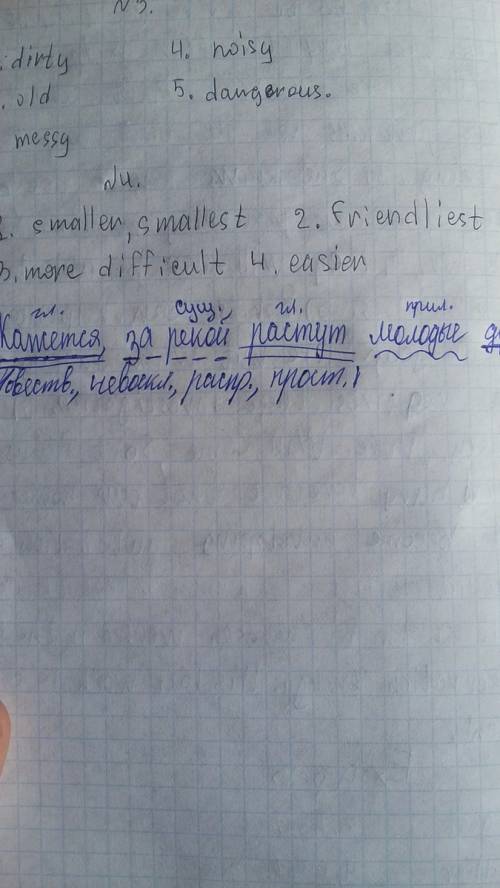 №3.
dirty 4. noisy
. old 5. dangerous.
messy
№4.
1. smaller, smallest 2. friendliest
3. more difficult 4. easier
гл. сущ. гл. прил.
Кажется, за рекой растут молодые
Повеств., невоскл., распр., прост.